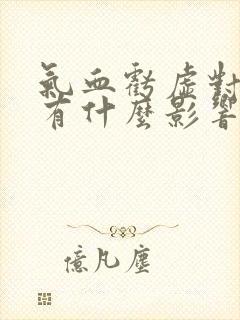 氣血虧虛對
有什麼影響
億凡塵